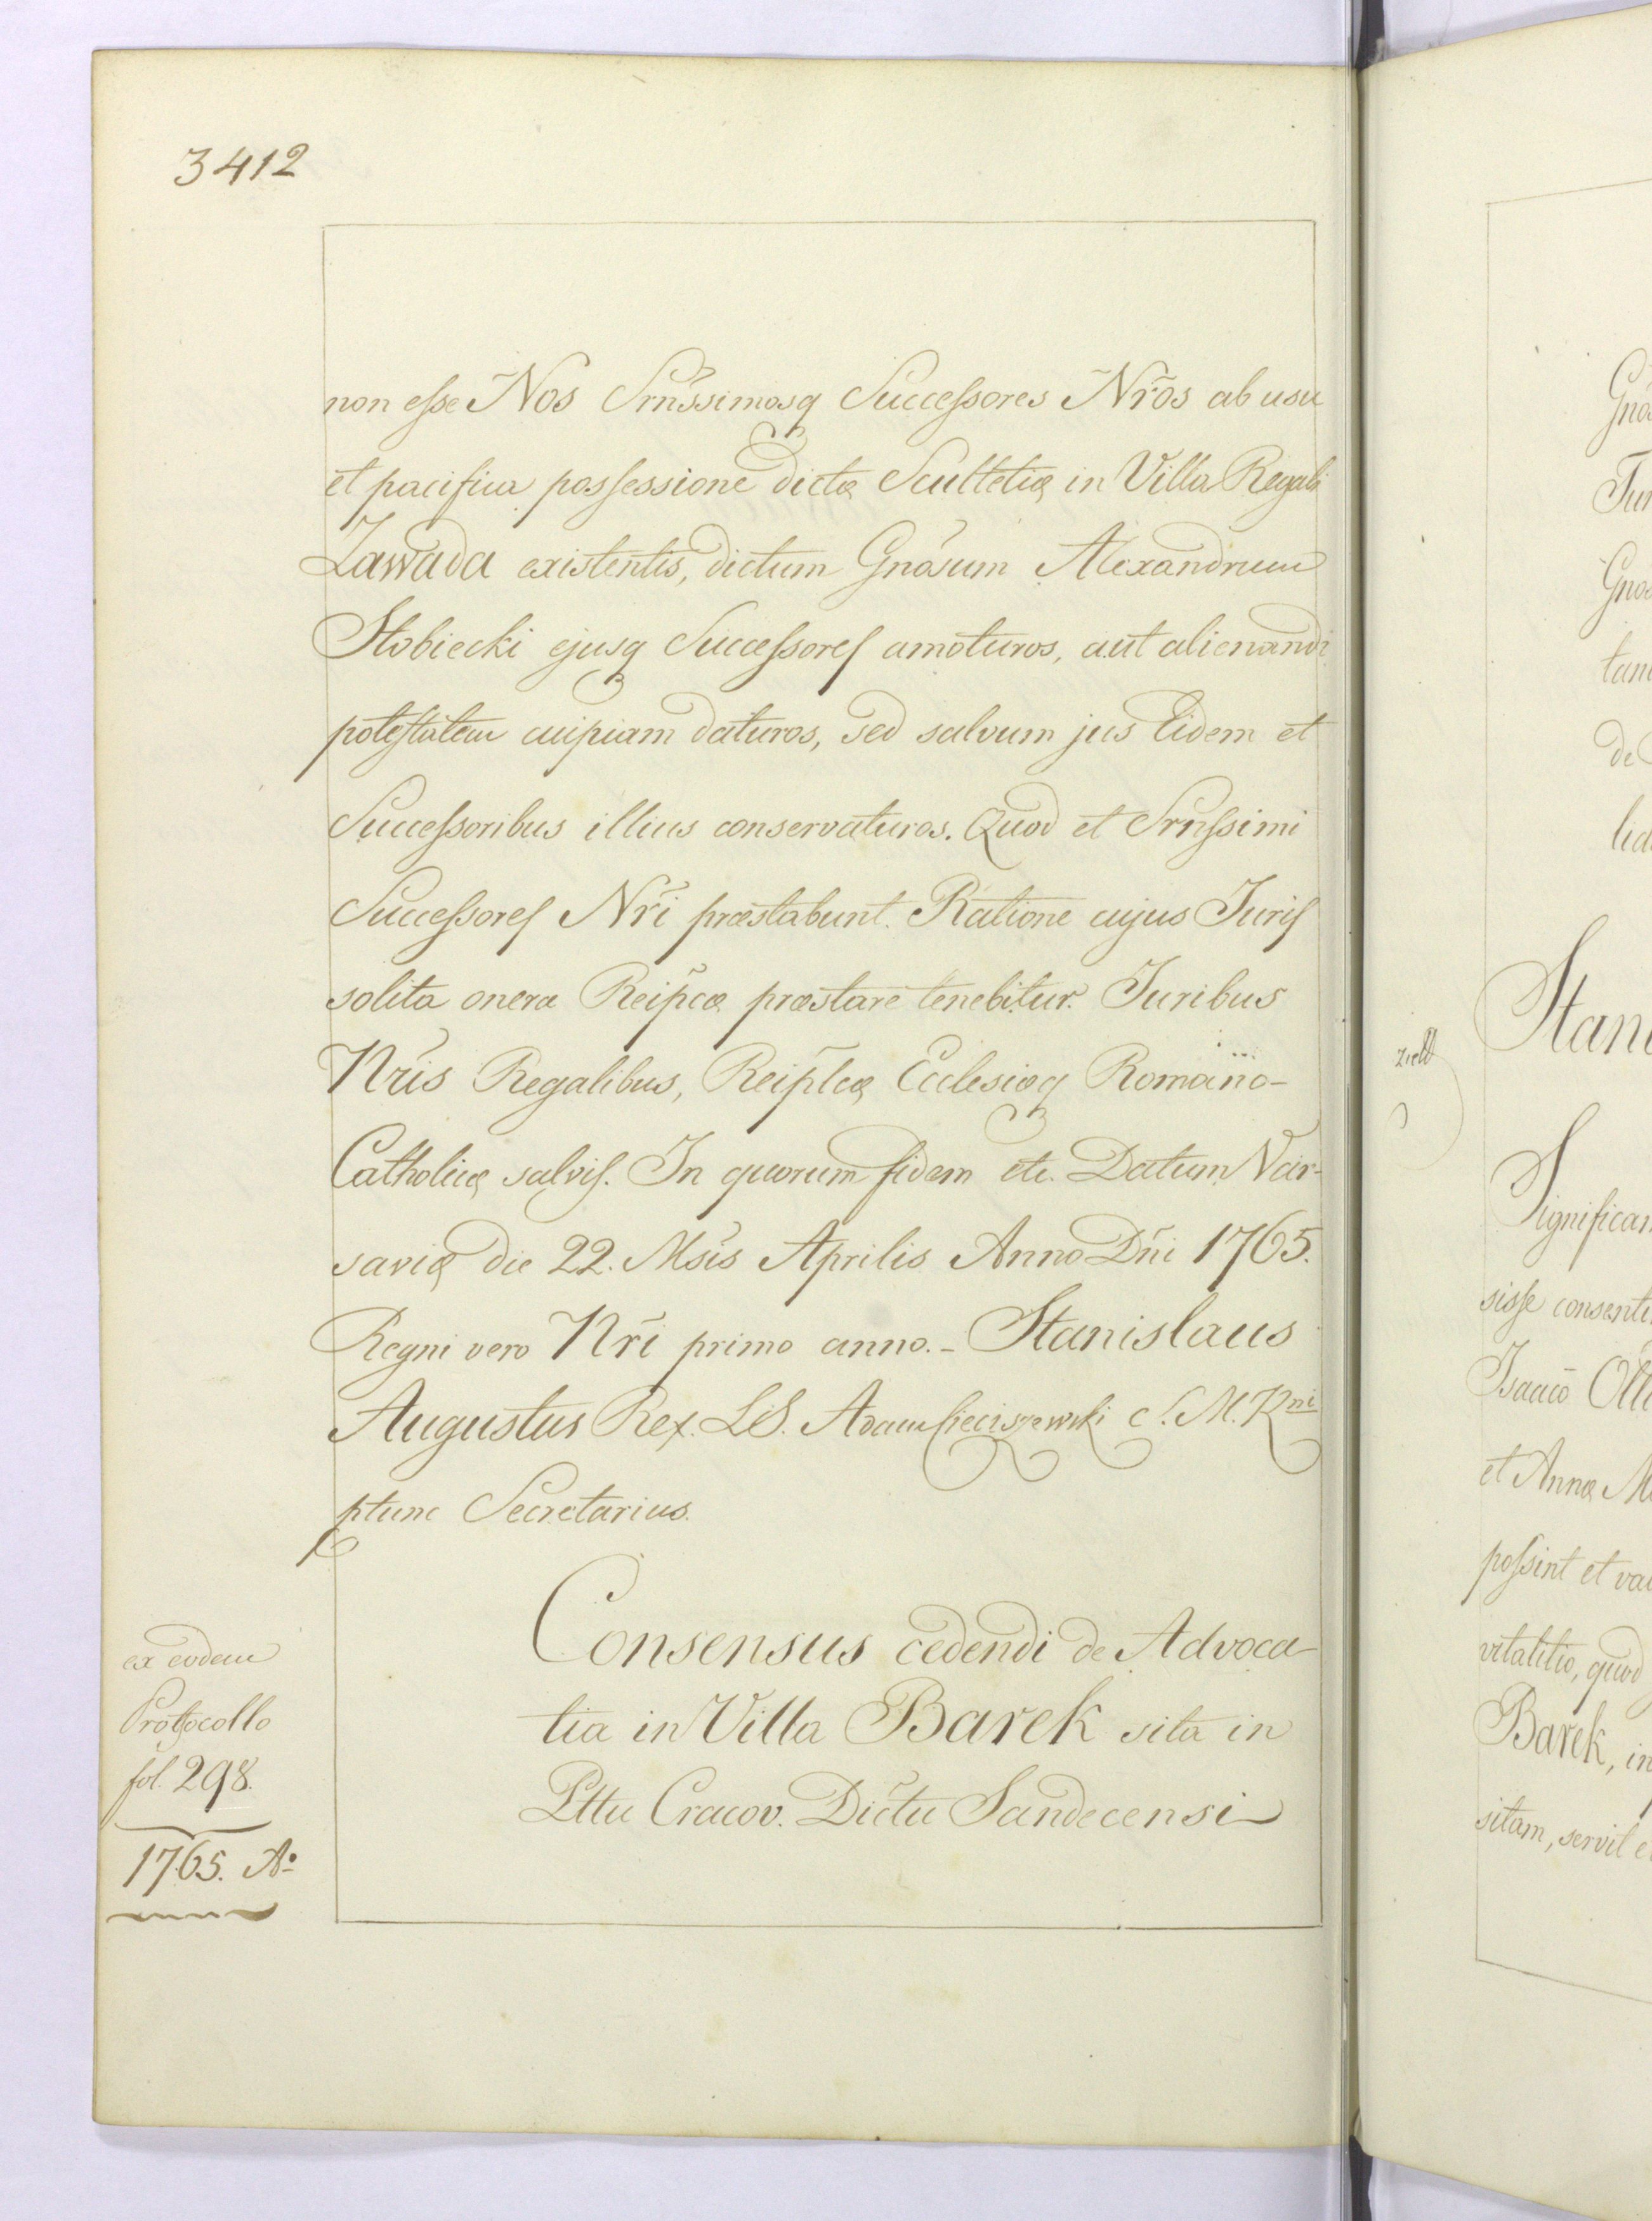 3412
non esse Nos Srñssimosq Successores Nr̃os ab usu
et pacifica possessione dictæ Scultetiæ in Villa Regali
Zawada existentis, dictum Gnõsum Alexandrum
Stobiecki ejusq Successores amoturos, aut alienandi
potestatem cuipiam daturos, sed salvum jus Eidem et
Successoribus illius conservaturos. Quod et Srñssimi
Successores Nr̃i præstabunt. Ratione cujus Juris
solita onera Reip̃cæ præstare tenebitur. Juribus
Nr̃is Regalibus, Reip̃lcæ Ecclesiæq Romano-
Catholicæ salvis. In quorum fidem etc. Datum Var-
saviæ die 22. Msis Aprilis Anno Dñi 1765.
Regni vero Nr̃i primo anno. - Stanislaus
Augustus Rex. LS. Adam Cieciszewski S. M. Rni
ptunc Secretarius.
ex eodem
Protocollo
fol. 298.
1765. Ao
Consensus cedendi de Advoca
tia in Villa Barek sita in
Pttu Cracov. Dictu Sandecensi
Stani
Significam
sisse consenti
Isaaco
et Annæ
possint et val
vitalitio, quod
Barek, in
sitam, servit